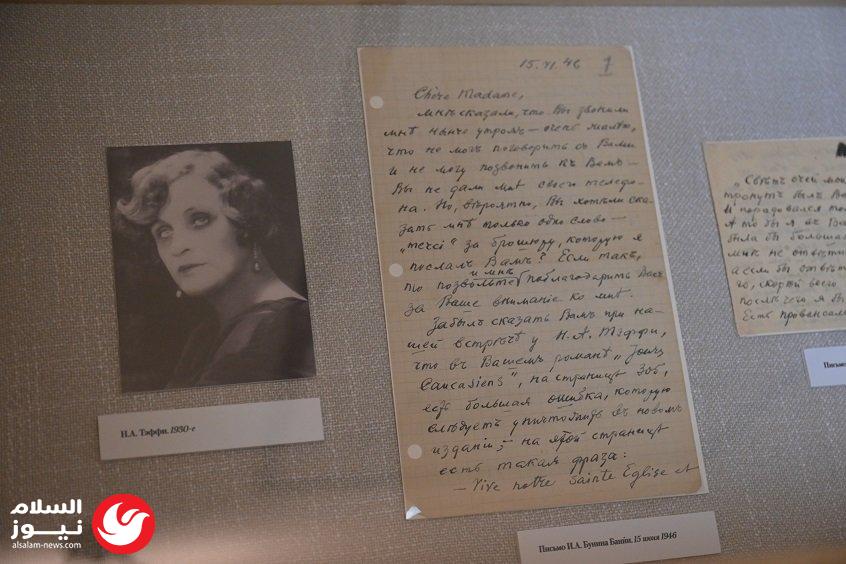 15.VI.46 1
Chère Madame,
мнѣ сказали, что Вы звонили
мнѣ нынче утромъ — очень жалѣю,
что не могъ поговорить съ Вами
и не могу позвонить къ Вамъ —
Вы не дали мнѣ своего телефо-
на. Но, вѣроятно, Вы хотѣли ска-
зать мнѣ только одно слово —
"merci" за брошюру, которую я
послалъ Вамъ? Если такъ,
и мнѣ
то позвольте поблагодарить Васъ
за Ваше вниманіе ко мнѣ.
Забылъ сказать Вамъ при на-
шей встрѣчѣ у Н.А. Тэффи,
что въ Вашемъ романѣ "Jours
Caucasiens", на страницѣ 306,
есть большая ошибка, которую
слѣдуетъ уничтожить въ новомъ
изданіи; — на этой страницѣ
есть такая фраза:
— Vive notre Sainte Eglise et
"Свѣтъ очей мо
тронутъ былъ Ва
и порадовался
А то бы я въ Ва
была бы большая
мнѣ не отвѣти
а если бы отвѣти
го, скорѣй всего
послѣ чего я бы
Есть провансал
Н.А. Тэффи. 1930-е
Письмо И.А. Бунина Банин. 15 июня 1946
Письмо
السلام
نيوز
alsalam-news.com